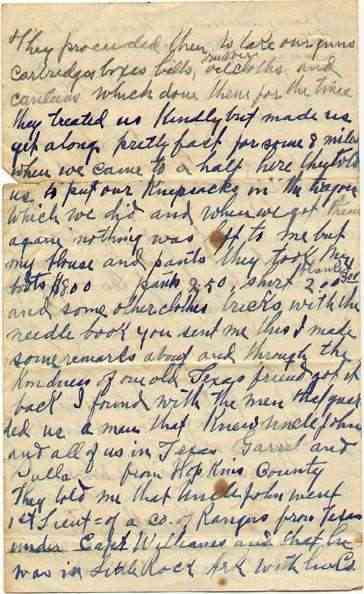 They proceeded then to take our guns
cartredges boxes belts, rubber oilcloths and
canteens which done them for the time
they treated us kindly but made us
get along pretty fast for some 8 miles
when we came to a halt here they told
us to put our Knapsacks in the wagon
which we did and when we got them
again nothing was left to me but
my blouse and pants they took my
boots $800 pants 250, shirt 200
and some other clothes tricks, with the
needle book you sent me this I made
some remarks about and through the
kindness of one old Texas friend got it
back I found with the men that guar
ded us a man that knew uncle John
and all of us in Texas Garret and
from Hopkins County
They told me that Uncle John went
1st Lieut= of a co. of Rangers from Texas
under Capt Williams and that he
was in Little Rock Ark with his Co